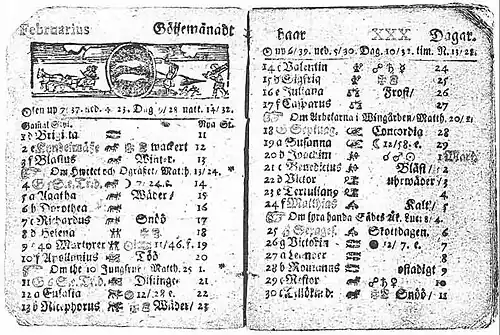 Februarius Göijemånadt
Solen up 7/37. ned. 4 23. Dag 9/28 natt. 14/32.
Gamal Styl. Nya St.
1 d Brigita 11
2 e Kyndelmässe wackert 12
3 f Blasius Winter. 13
Om Hwetet och Ogräset/ Matth. 13/24.
4 7/24. e. 14
5 a Agatha Wäder/ 15
6 b Dorothea 16
7 c Richardus Snöö 17
8 d Helena 18
9 e 40 Martyrer 11/46. f. 19
10 f Apollonius Töö 20
Om the 10 Jungfrur Matth. 25 1.
11 Distinge. 21
12 a Eulalia 12/28 e. 22
13 b Nicephorus Wäder/ 23
haar XXX Dagar.
up 6/39. ned. 5/30. Dag. 10/32. tim. N. 13/28.
14 c Valentin 24
15 d Sigfrid 25
16 e Juliana Frost/ 26
17 f Casparus 27
Om Arbetarna i Wingården/ Matth. 20/1.
18 Concordia 28
19 a Susanna 12/58. e. 29
20 b Joachim 1 Mart.
21 c Benedictus Bläst/ 2
22 d Victor uhrwäder/ 3
23 e Tertullianus 4
24 f Matthias Kalt/ 5
Om fyrahanda Sädes Åk. Luc: 8/4.
25 g Sexages. Skottdagen. 6
26 a Victorin 2/7. e. 7
27 a Leander 8
28 b Romanus ostadigt 9
29 c Nestor 10
30 Snöö/ 11